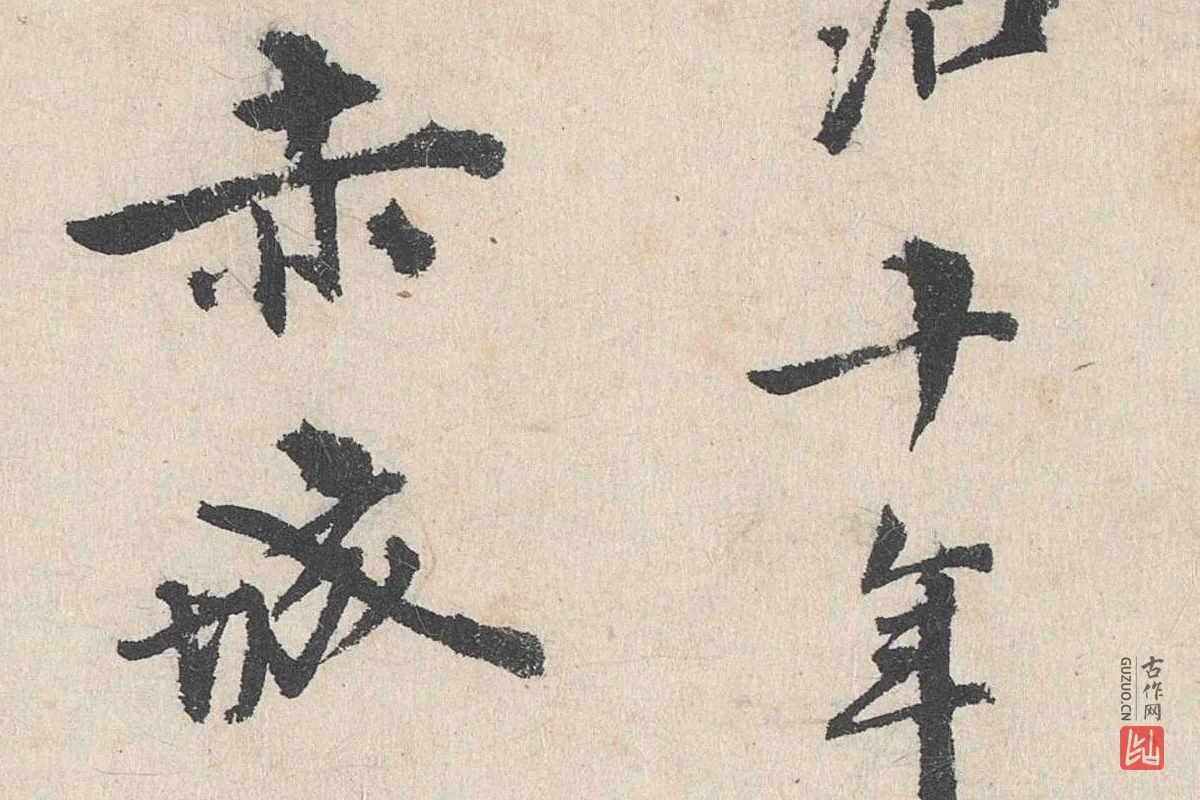 治十年
赤城
古作网
GUZUO.CN